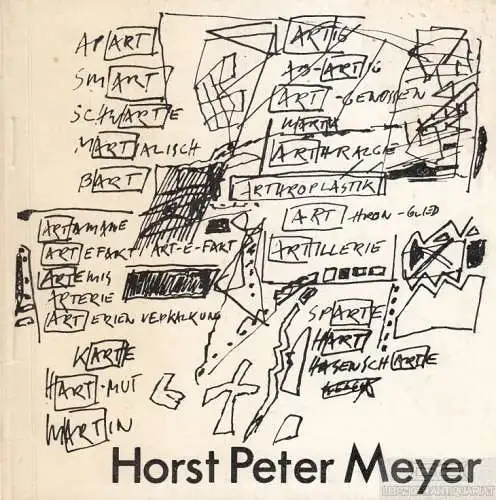 APART
SMART
SCHWARTE
MARTIALISCH
BART
ARTAMANE
ARTEFAKT / ART-E-FART
ARTEMIS
ARTERIE
ARTERIENVERKALKUNG
KARTE
HART-MUT
MARTIN
ARTIG
AB-ARTIG
ART-GENOSSEN
MARTA
ARTHRALGIE
ARTHROPLASTIK
ART HRON-GLIED
ARTILLERIE
SPARTE
HART
HASENSCHARTE
Horst Peter Meyer